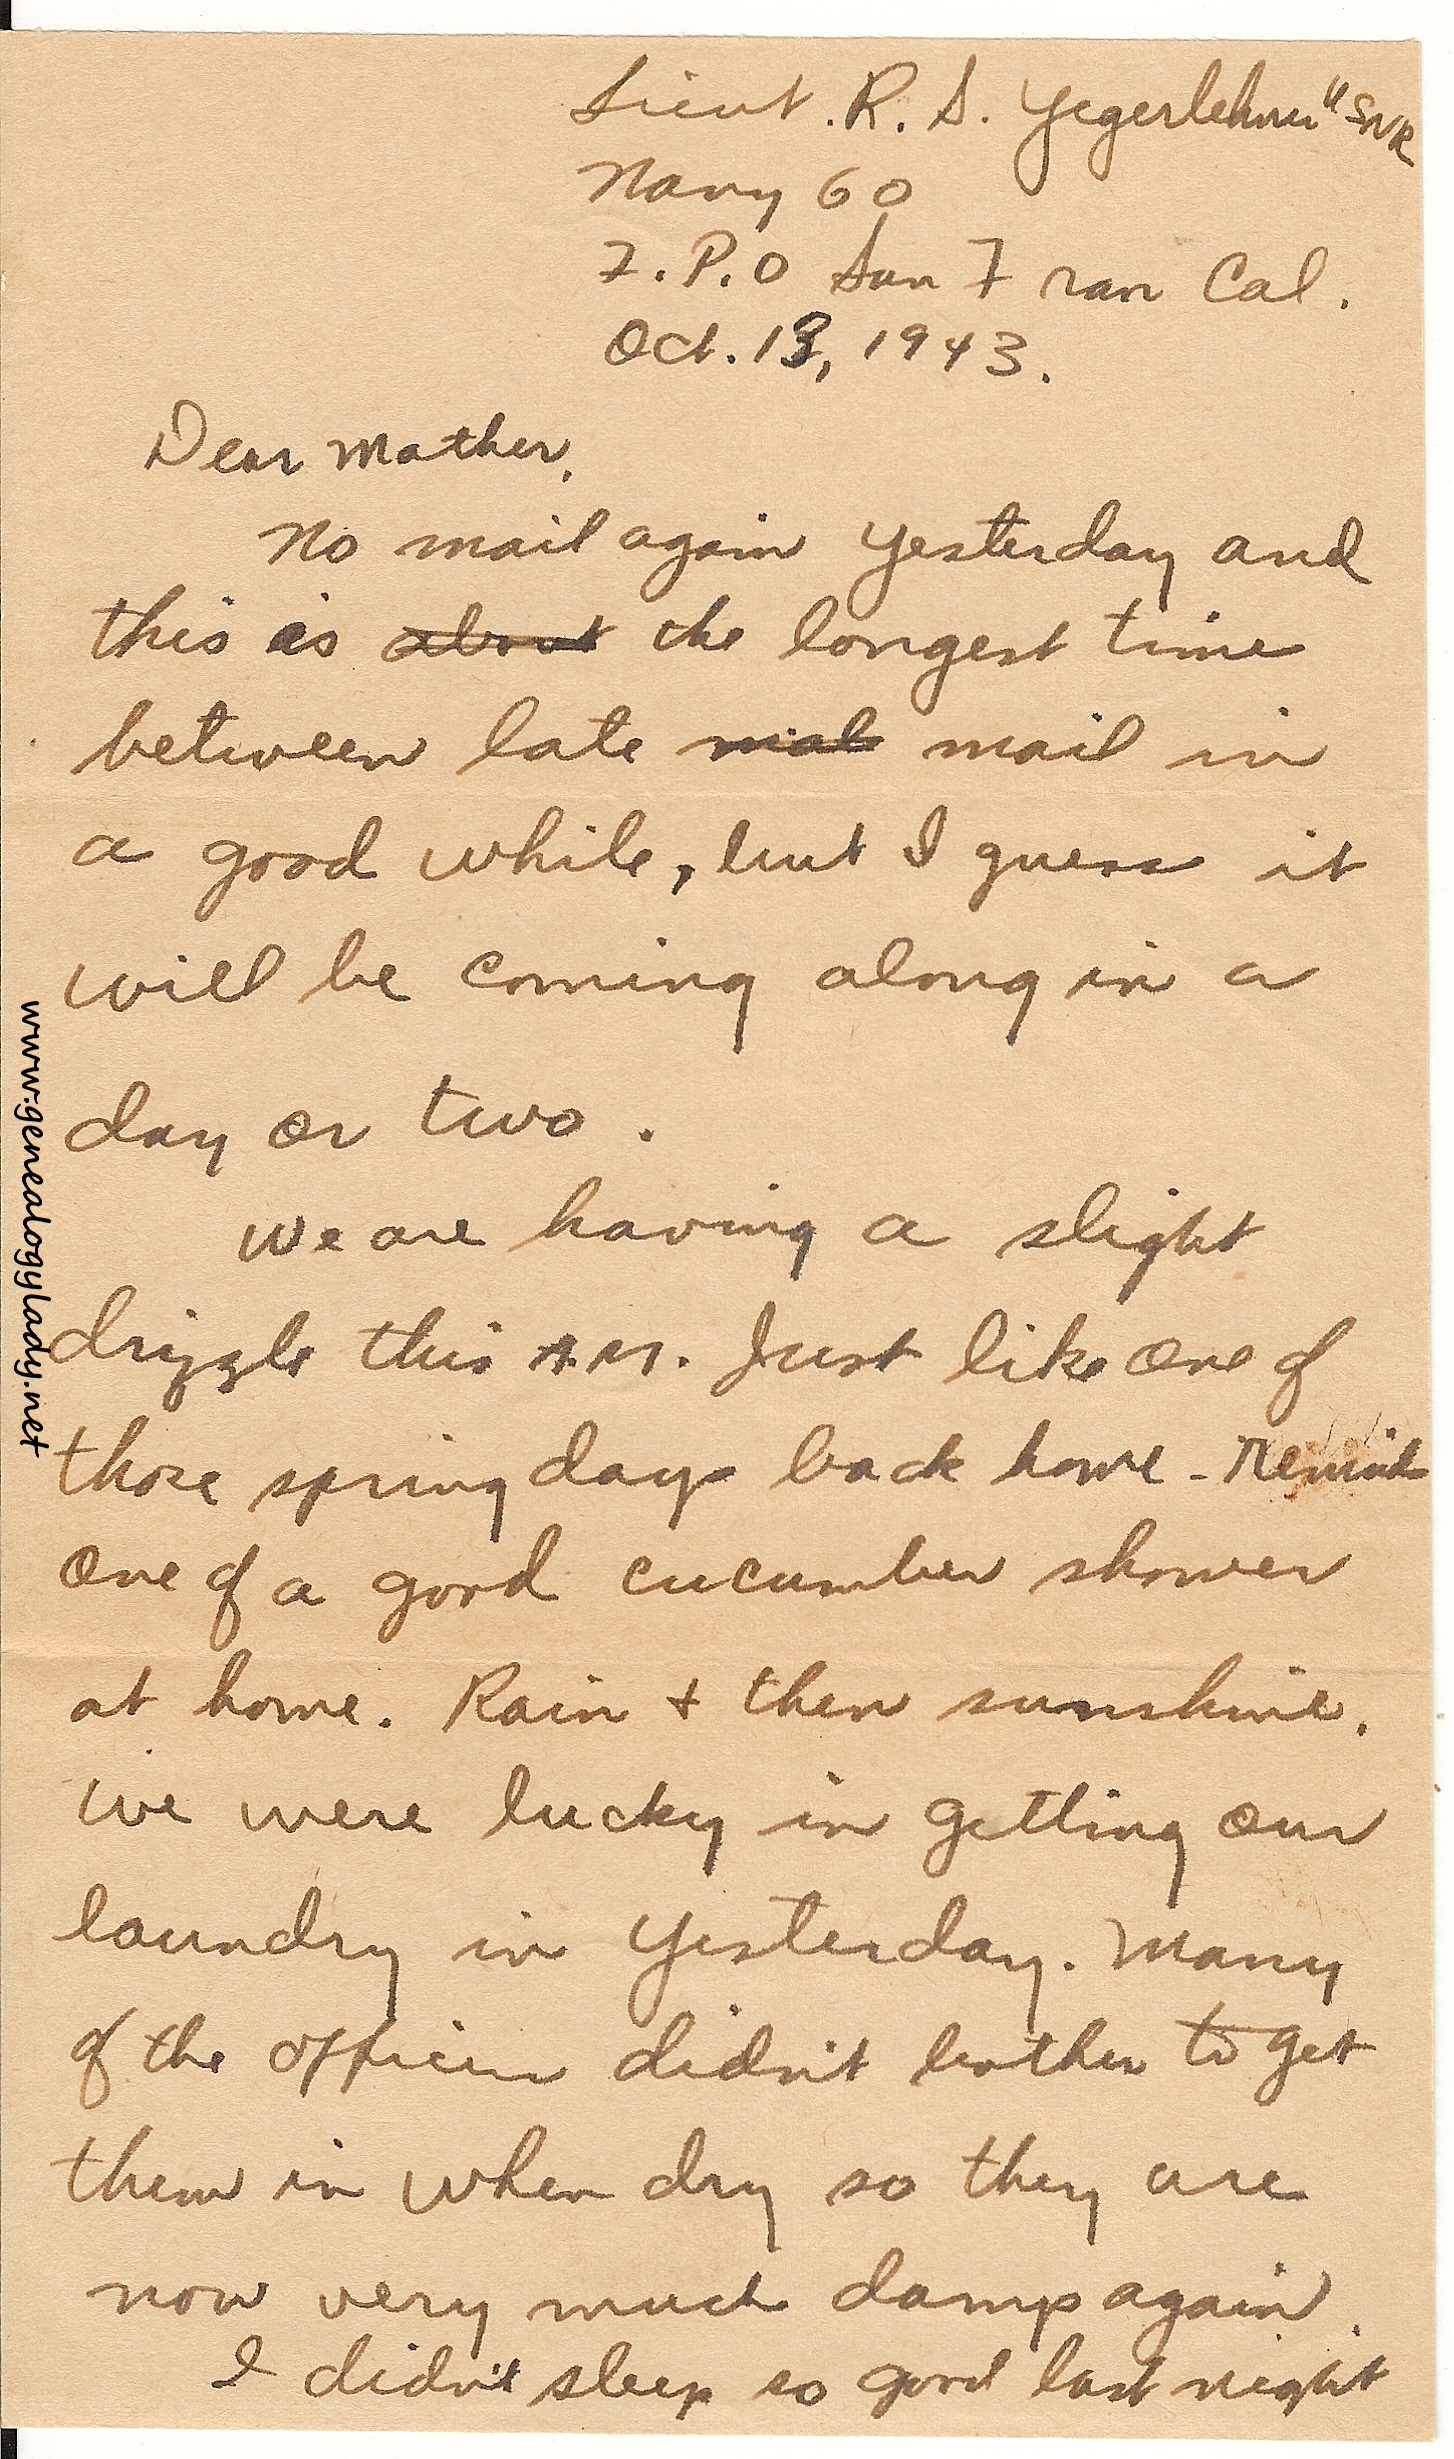 Lieut. R. S. Yegerlehner USNR
Navy 60
F.P.O San Fran Cal.
Oct. 13, 1943.
Dear Mother,
No mail again yesterday and
this is about the longest time
between late mail in
a good while, but I guess it
will be coming along in a
day or two.
We are having a slight
drizzle this A.M. Just like one of
those spring days back home - Remind
one of a good cucumber shower
at home. Rain + then sunshine.
We were lucky in getting our
laundry in yesterday. Many
of the officers didn't bother to get
them in when dry so they are
now very much damp again.
I didn't sleep so good last night
www.genealogylady.net